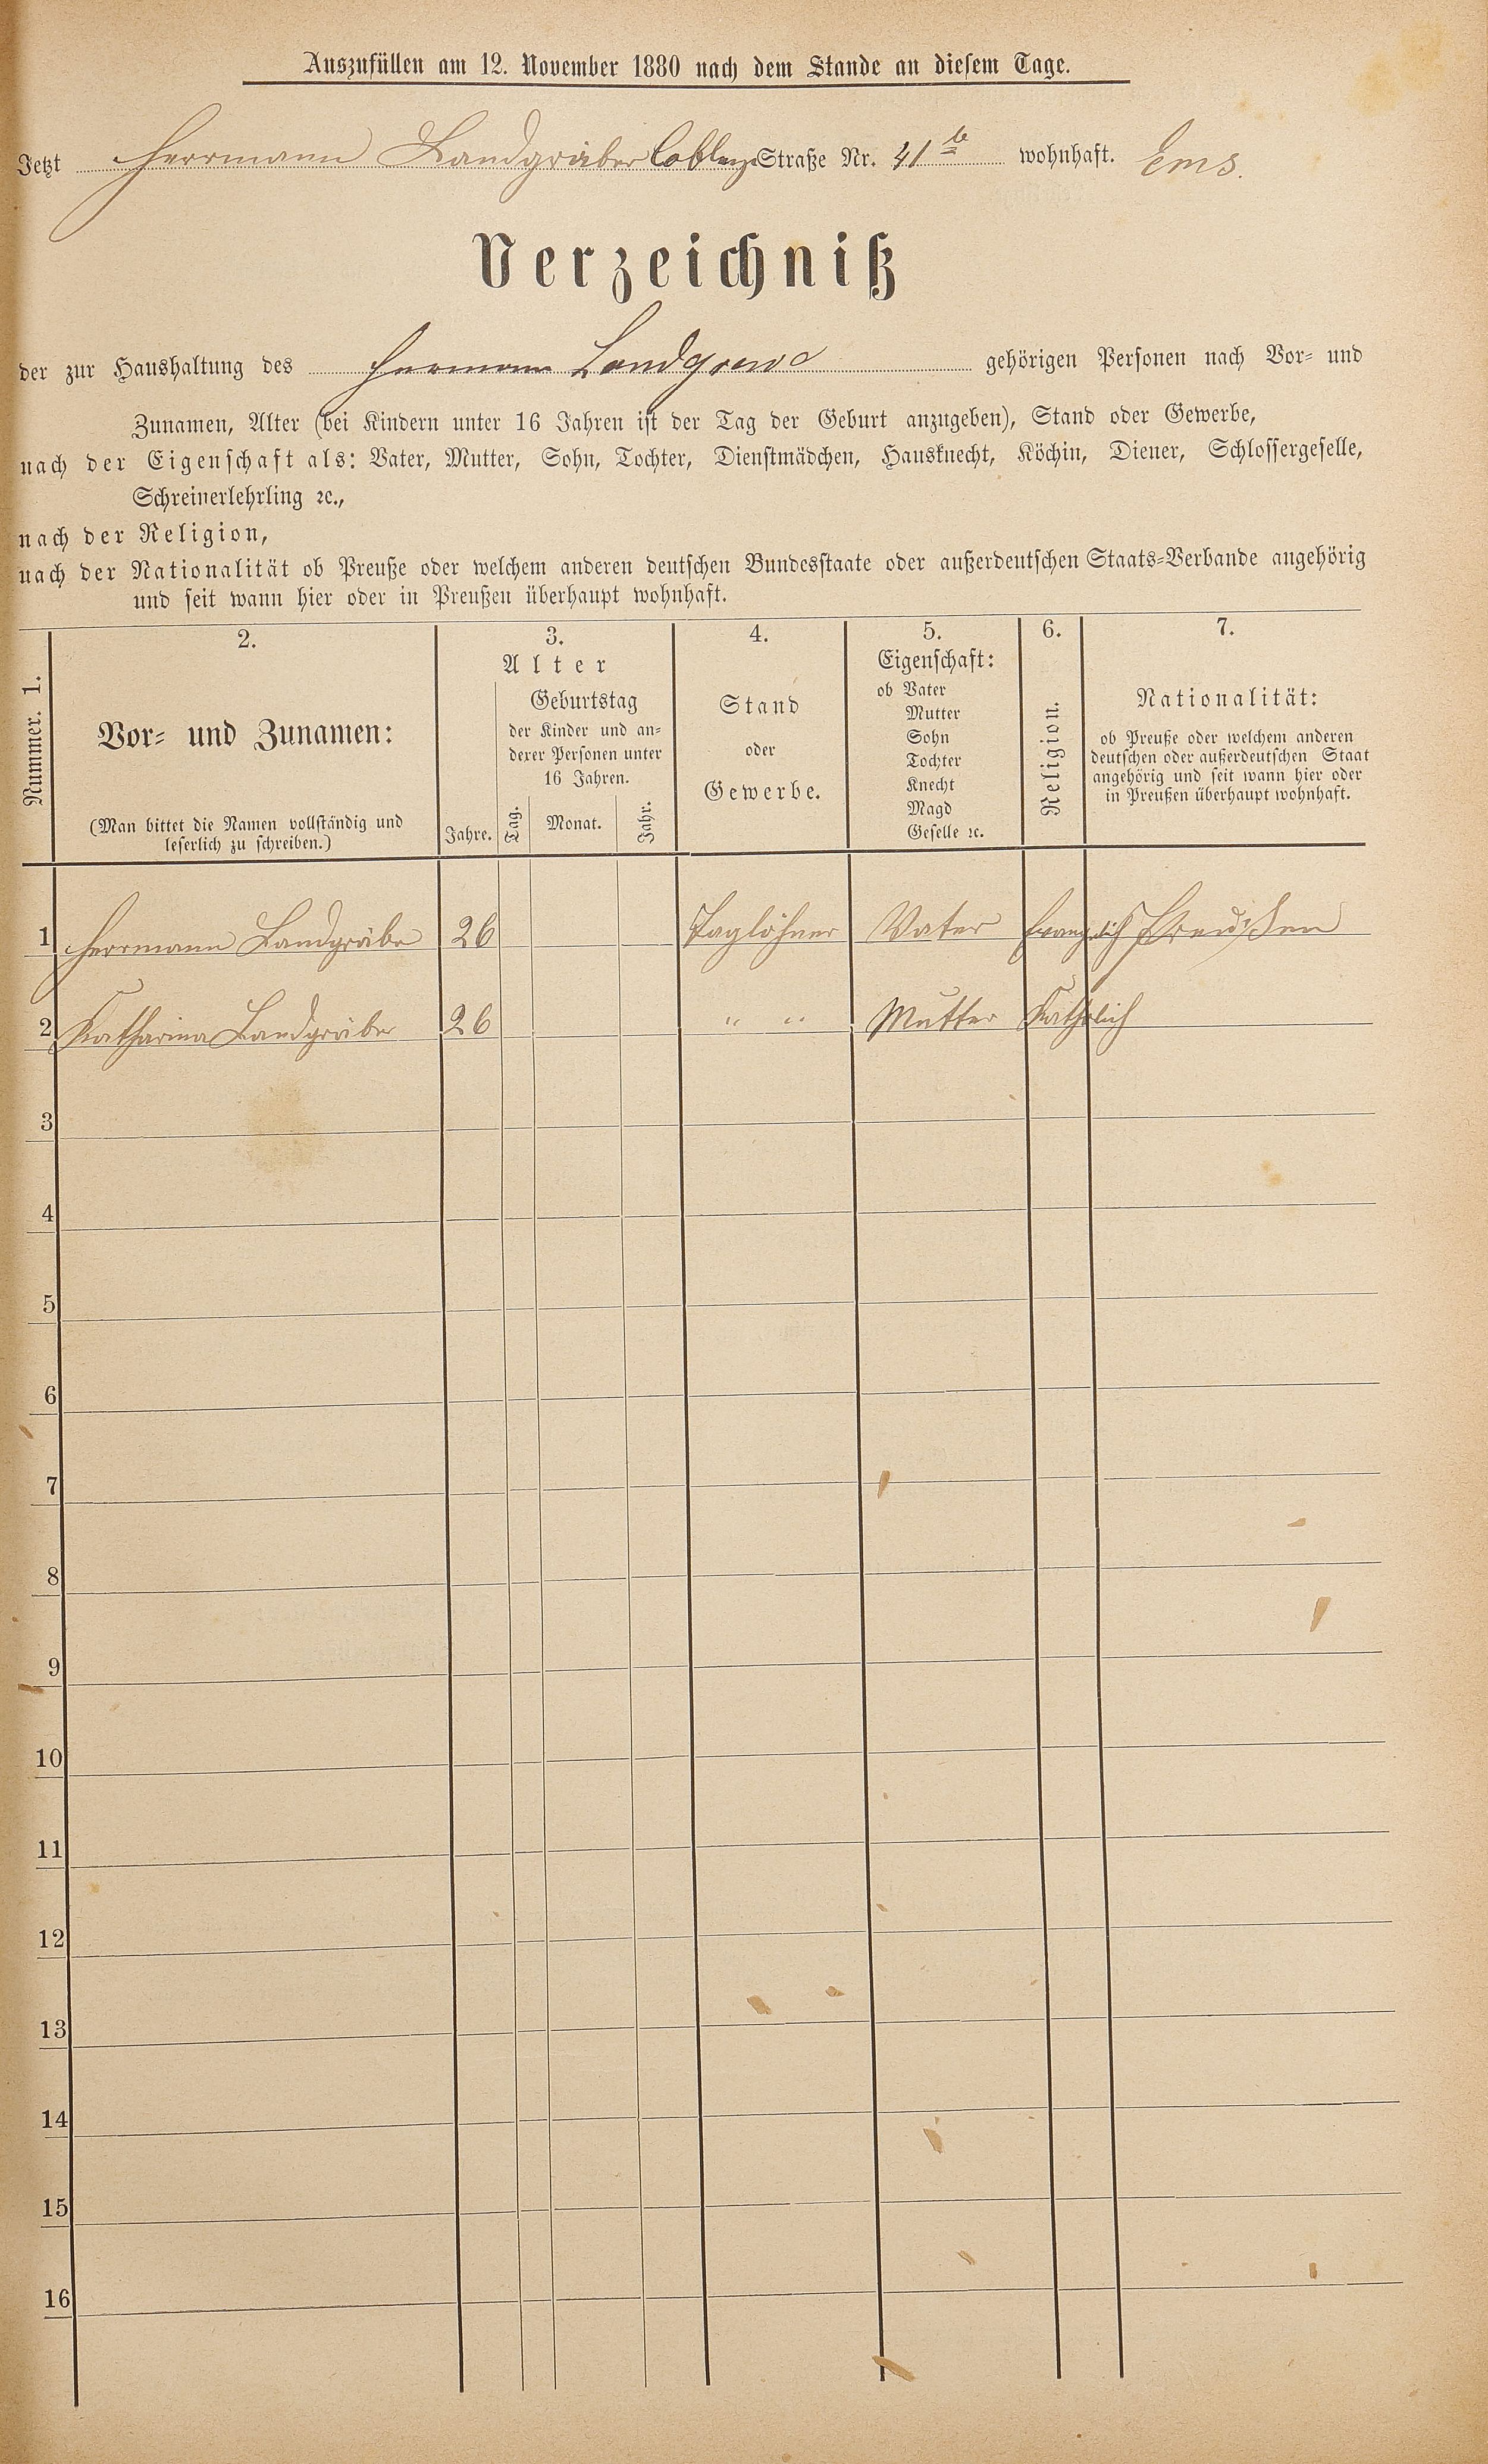 Auszufüllen am 12. November 1880 nach dem Stande an diesem Tage.
Jetzt Herrmann Landgräber Coblenz Straße Nr. 41 b wohnhaft. Ems.
Verzeichniß
der zur Haushaltung des Hermann gehörigen Personen nach Vor- und
Zunamen, Alter (bei Kindern unter 16 Jahren ist der Tag der Geburt anzugeben), Stand oder Gewerbe,
nach der Eigenschaft als: Vater, Mutter, Sohn, Tochter, Dienstmädchen, Hausknecht, Köchin, Diener, Schlossergeselle,
Schreinerlehrling ꝛc.,
nach der Religion,
nach der Nationalität ob Preuße oder welchem anderen deutschen Bundesstaate oder außerdeutschen Staats-Verbande angehörig
und seit wann hier oder in Preußen überhaupt wohnhaft.
Nummer. 1.
2.
Vor- und Zunamen:
(Man bittet die Namen vollständig und
leserlich zu schreiben.)
3.
Alter
Jahre.
Geburtstag
der Kinder und an-
derer Personen unter
16 Jahren.
Tag. Monat. Jahr.
4.
Stand
oder
Gewerbe.
5.
Eigenschaft:
ob Vater
Mutter
Sohn
Tochter
Knecht
Magd
Geselle ꝛc.
6.
Religion.
7.
Nationalität:
ob Preuße oder welchem anderen
deutschen oder außerdeutschen Staat
angehörig und seit wann hier oder
in Preußen überhaupt wohnhaft.
1 Herrmann Landgräbe 26 Taglöhner Vater Evanglich Preußen
2 Katharina Landgräbe 26 " " Mutter Katholich
3
4
5
6
7
8
9
10
11
12
13
14
15
16